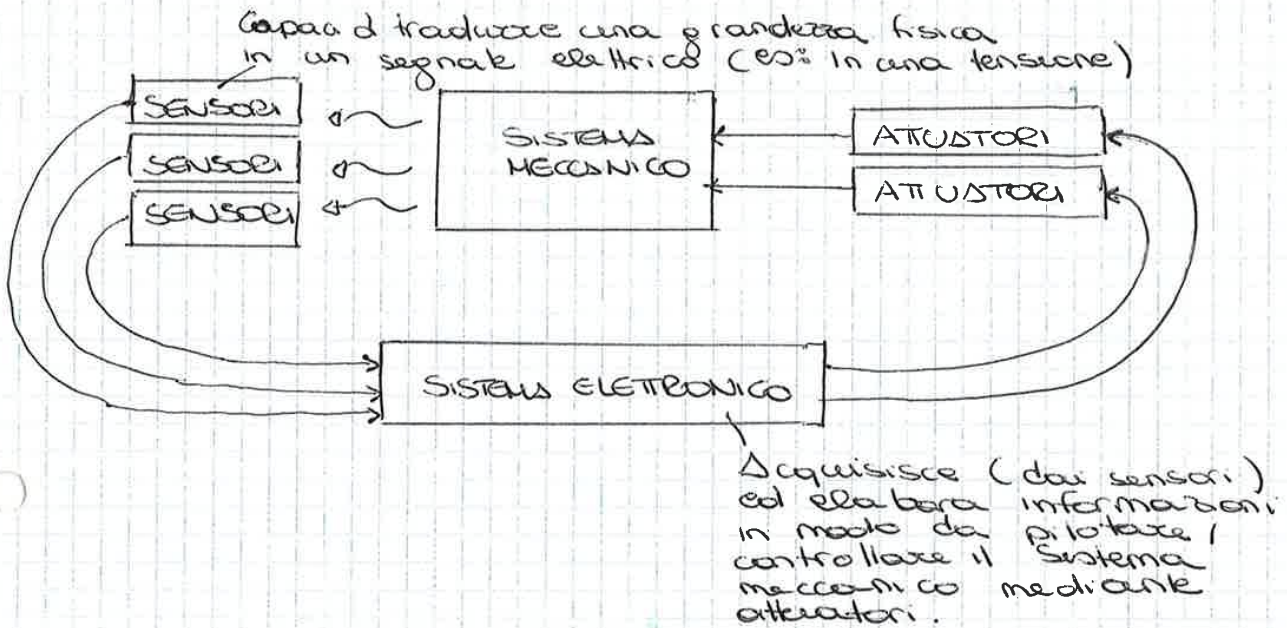 Capaci d tradurre una grandezza fisica
in un segnale elettrico (es: in una tensione)
SENSORI
SENSORI
SENSORI
SISTEMA
MECCANICO
ATTUATORI
ATTUATORI
SISTEMA ELETTRONICO
Acquisisce (dai sensori)
ed elabora informazioni
in modo da pilotare /
controllare il Sistema
meccanico mediante
attuatori.